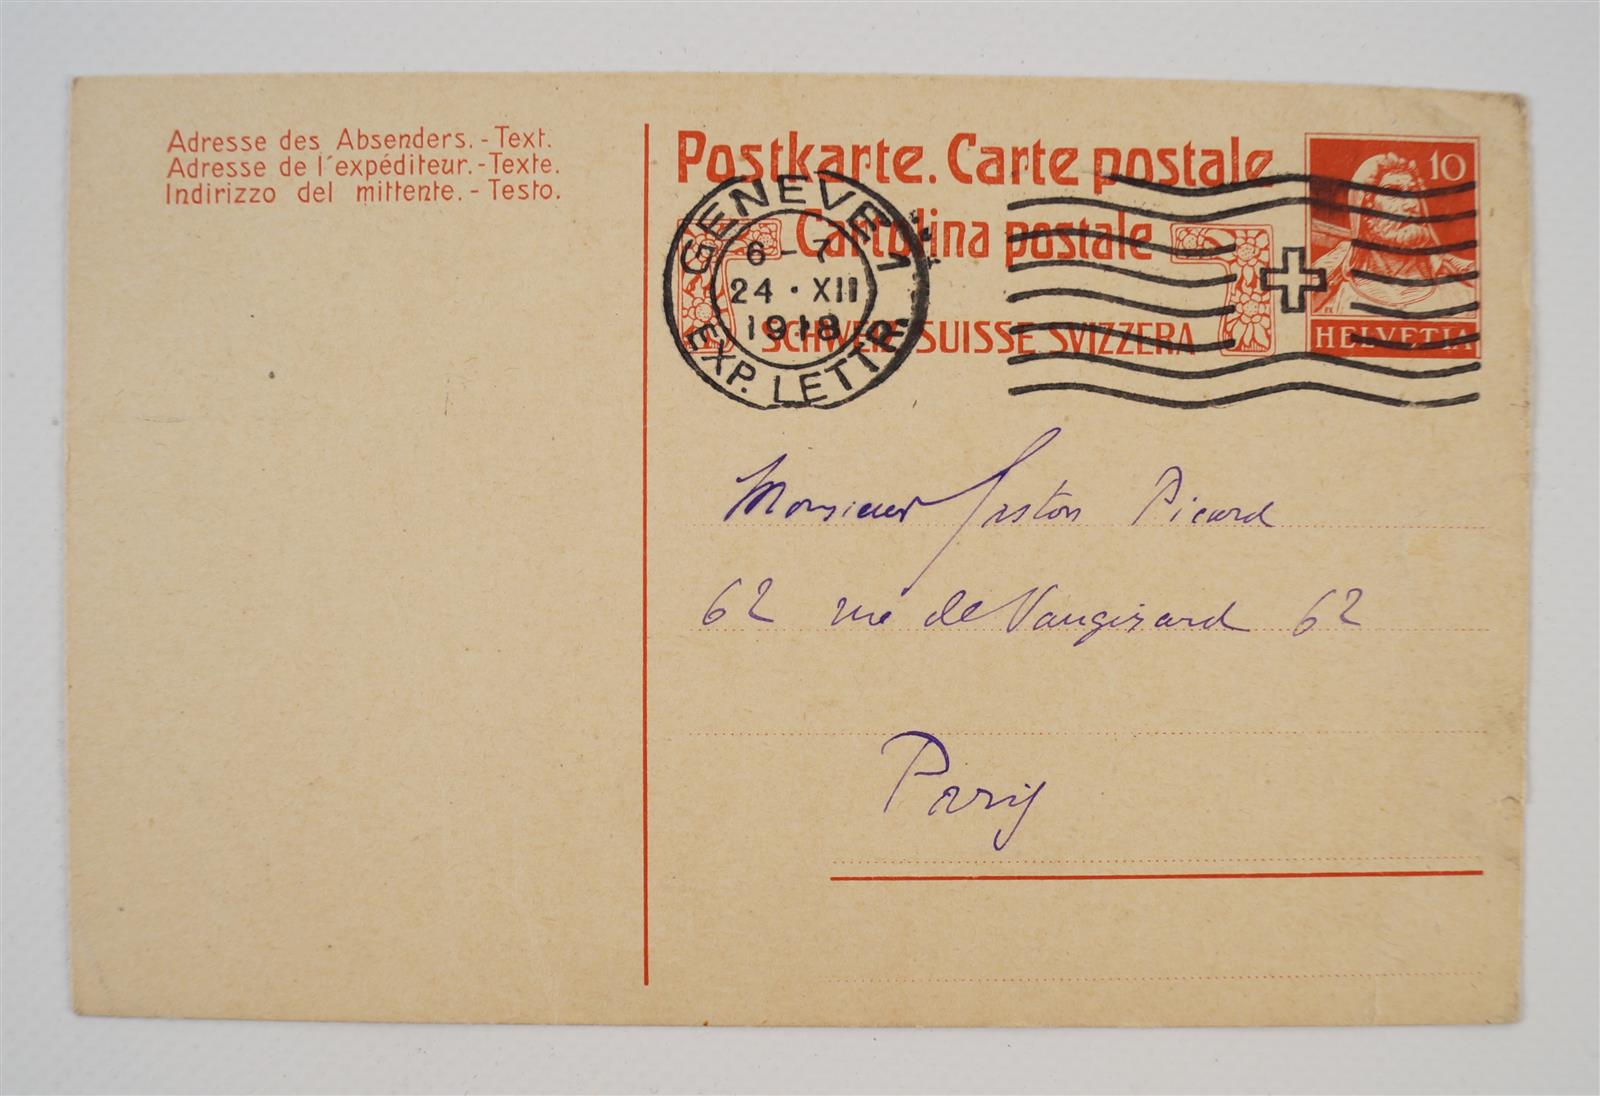 Adresse des Absenders.-Text.
Adresse de l'expéditeur.-Texte.
Indirizzo del mittente.-Testo.
Postkarte. Carte postale
Cartolina postale
SCHWEIZ SUISSE SVIZZERA
10
HELVETIA
GENEVE 1
6-7
24·XII
1918
EXP. LETTR.
Monsieur Gaston Picard
62 rue de Vaugirard 62
Paris